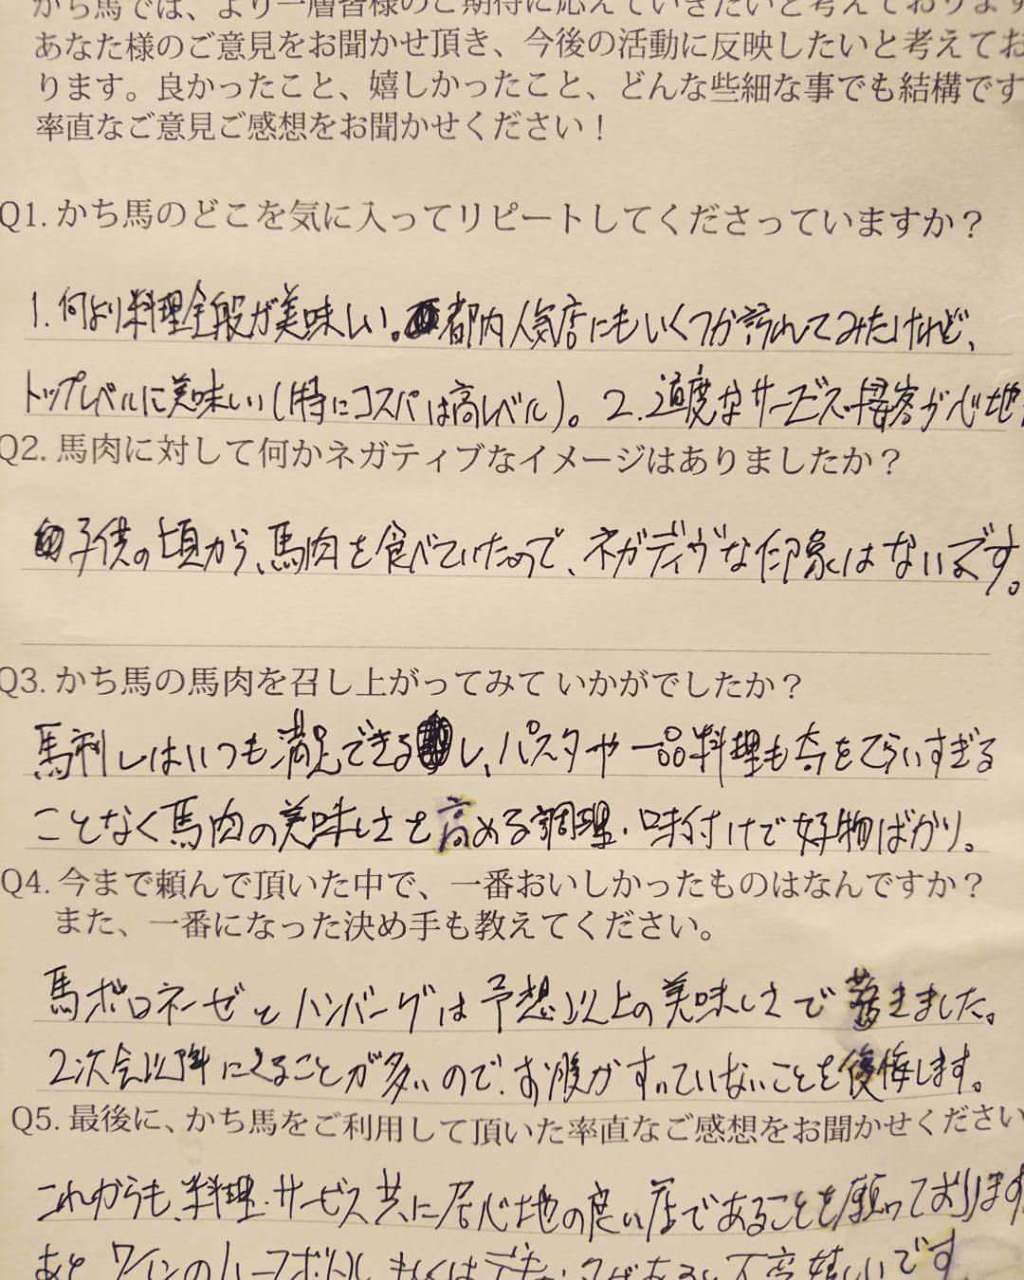 かち馬では、より一層皆様のご期待に応えていきたいと考えております
あなた様のご意見をお聞かせ頂き、今後の活動に反映したいと考えてお
ります。良かったこと、嬉しかったこと、どんな些細な事でも結構です
率直なご意見ご感想をお聞かせください！
Q1. かち馬のどこを気に入ってリピートしてくださっていますか？
1. 何より料理全般が美味しい。都内人気店にもいくつか訪れてみたけれど、
トップレベルに美味しい(特にコスパは高レベル)。2. 適度なサービス・接客が心地
Q2. 馬肉に対して何かネガティブなイメージはありましたか？
子供の頃から、馬肉を食べていたので、ネガディヴな印象はないです。
Q3. かち馬の馬肉を召し上がってみて いかがでしたか？
馬刺しはいつも満足できるし、パスタや一品料理も奇をてらいすぎる
ことなく馬肉の美味しさを高める調理・味付けで好物ばかり。
Q4. 今まで頼んで頂いた中で、一番おいしかったものはなんですか？
また、一番になった決め手も教えてください。
馬ボロネーゼとハンバーグは予想以上の美味しさで驚きました。
2次会以降にくることが多いので、お腹がすいていないことを後悔します。
Q5. 最後に、かち馬をご利用して頂いた率直なご感想をお聞かせください
これからも、料理・サービス共に居心地の良い店であることを願っております
あと ワインのハーフボトル もしくは